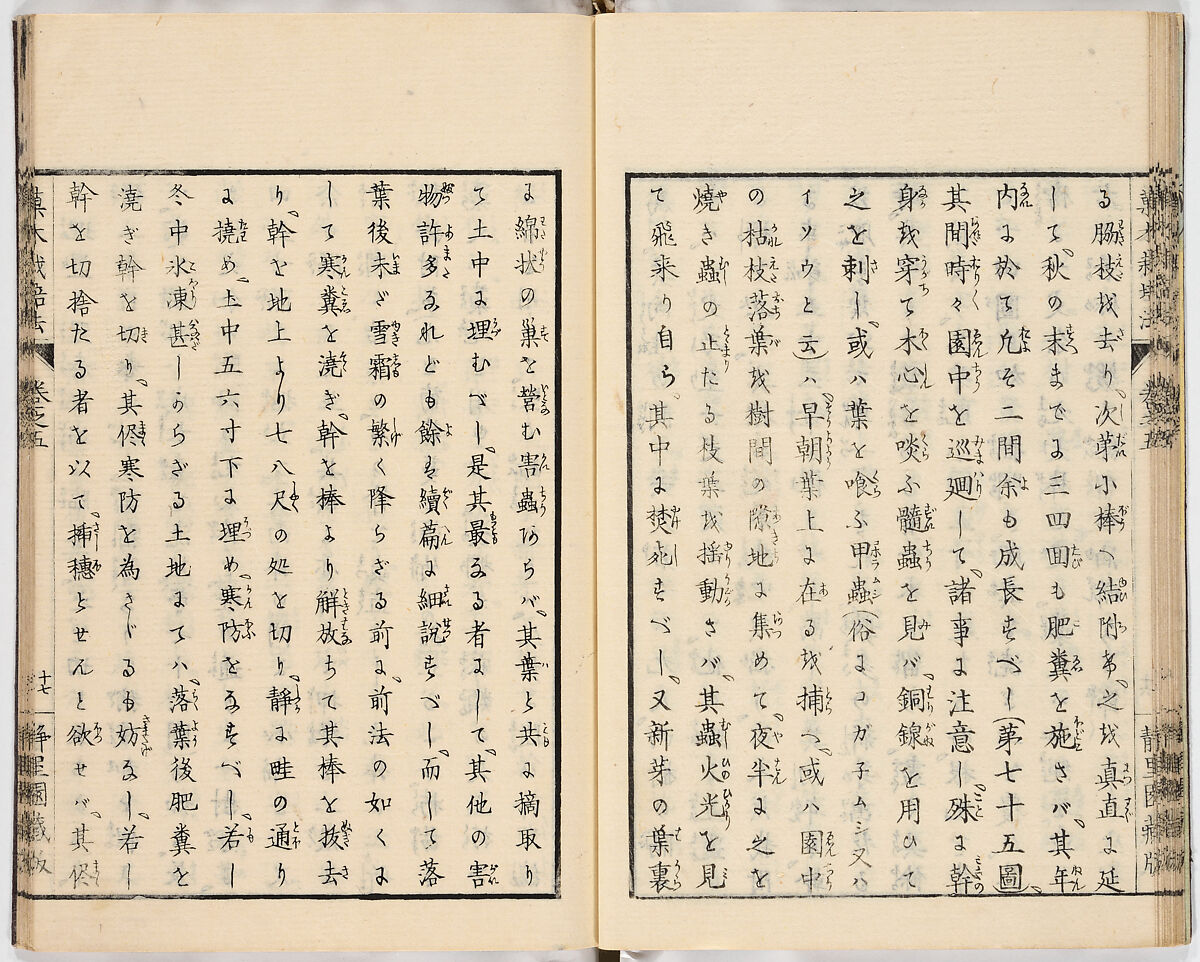 る脇枝を去り、次第小棒へ結附市、之を真直に延
して、秋の末までに三四回も肥糞を施さバ、其年
内に於て凡そ二間余も成長すべし(第七十五圖)、
其間時々園中を巡廻して、諸事に注意し殊に幹
身を穿て木心を啖ふ髓蟲を見バ、銅線を用ひて
之を刺し、或ハ葉を喰ふ甲蟲(俗にコガ子ムシ又ハ
イソウと云)ハ、早朝葉上に在るを捕へ、或ハ園中
の枯枝落葉を樹間の隙地に集めて、夜半に之を
燒き蟲の止たる枝葉を揺動さバ、其蟲火光を見
て飛来り自ら、其中に焚死すべし、又新芽の葉裏
菓木栽培法 卷之五
静里園蔵版
に綿状の巣を營む害蟲あらバ、其葉と共に摘取り
て土中に埋むべし、是其最なる者にして、其他の害
物許多なれども餘は續篇に細説すべし、而して落
葉後未ざ雪霜の繁く降らざる前に、前法の如くに
して寒糞を澆ぎ、幹を棒より解放ちて其棒を抜去
り、幹を地上より七八尺の処を切り、静に畦の通り
に撓め、土中五六寸下に埋め、寒防をなすべし、若し
冬中氷凍甚しからざる土地にてハ、落葉後肥糞を
澆ぎ幹を切り、其侭寒防を為さゞるも妨なし、若し
幹を切捨たる者を以て、挿穗とせんと欲せバ、其侭
菓木栽培法 卷之五
十七
静里園蔵版